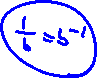 1/b = b⁻¹